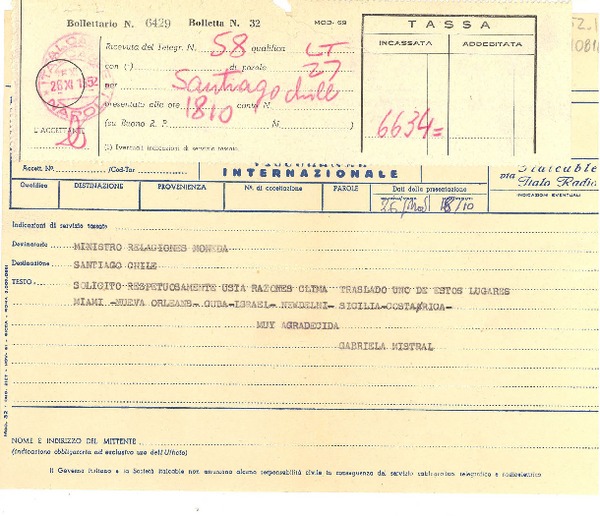 Bollettario N. 6429 Bolletta N. 32 MOD. 69
Ricevuta del Telegr. N. 58 qualifica LT
con ( ) di parole 27
per Santiago Chile
presentato alle ore 1810 conto N.
(su Buono R. P. N. )
L'ACCETTANTE
(1) Eventuali indicazioni di servizio tassate
ITALCABLE
26 XI 1952
NAPOLI
TASSA
INCASSATA ADDEBITATA
6634=
52.1
Accett. Nº. /Cod-Tar
INTERNAZIONALE
Italcable
via Italo Radio
INDICAZIONI EVENTUALI
Qualifica DESTINAZIONE PROVENIENZA Nº. di accettazione PAROLE Dati della presentazione
18/10
Indicazioni di servizio tassate
Destinatario MINISTRO RELAGIONES MONEDA
Destinazione SANTIAGO CHILE
TESTO SOLICITO RESPETUOSAMENTE USIA RAZONES CLIMA TRASLADO UNO DE ESTOS LUGARES
MIAMI -NUEVA ORLEANS- CUBA-ISRAEL-NEWDELHI- SICILIA-COSTARICA-
MUY AGRADECIDA
GABRIELA MISTRAL
NOME E INDIRIZZO DEL MITTENTE
(indicazione obbligatoria ad esclusivo uso dell'Ufficio)
Il Governo Italiano e la Società Italcable non assumono alcuna responsabilità civile in conseguenza del servizio cablografico telegrafico e radioelettrico